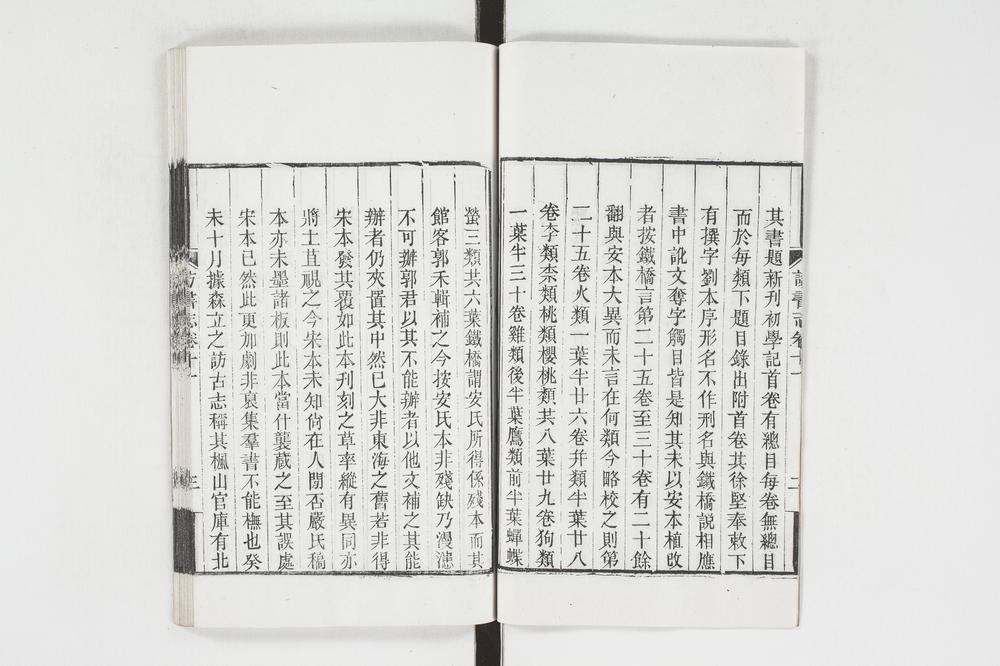 其書題新刊初學記首卷有總目每卷無總目
而於每類下題目錄出附首卷其徐堅奉敕下
有撰字劉本序形名不作刑名與鐵橋說相應
書中訛文奪字觸目皆是知其未以安本植改
者按鐵橋言第二十五卷至三十卷有二十餘
翻與安本大異而未言在何類今略校之則第
二十五卷火類一葉半廿六卷弁類半葉廿八
卷李類柰類桃類櫻桃類其八葉廿九卷狗類
一葉半三十卷雞類後半葉鷹類前半葉蟬蝶
螢三類共六葉鐵橋謂安氏所得係殘本而其
館客郭禾輯補之今按安氏本非殘缺乃漫漶
不可辦郭君以其不能辦者以他文補之其能
辦者仍夾置其中然已大非東海之舊若非得
宋本發其覆如此本刋刻之草率縱有異同亦
將土苴視之今宋本未知尙在人閒否嚴氏稿
本亦未墨諸板則此本當什襲蔵之至其誤處
宋本已然此更加劇非裒集羣書不能櫵也癸
未十月據森立之訪古志稱其楓山官庫有北
訪書志卷十一
二
訪書志卷十一
三